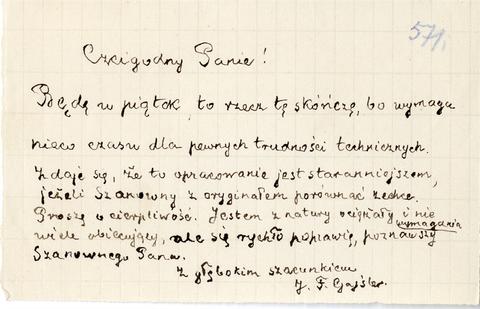 571.
Czcigodny Panie!
Będę w piątok, to rzecz tę skończę, bo wymaga
nieco czasu dla pewnych trudności technicznych.
Zdaje się, że to opracowanie jest staranniejszem,
jeżeli Szanowny z oryginałem porównać zechce.
Proszę o cierpliwość. Jestem z natury ociężały i nie
wiele obiecujący, ale się rychło poprawię, poznawszy
wymagania
Szanownego Pana.
Z głębokim szacunkiem
J. F. Gajsler.